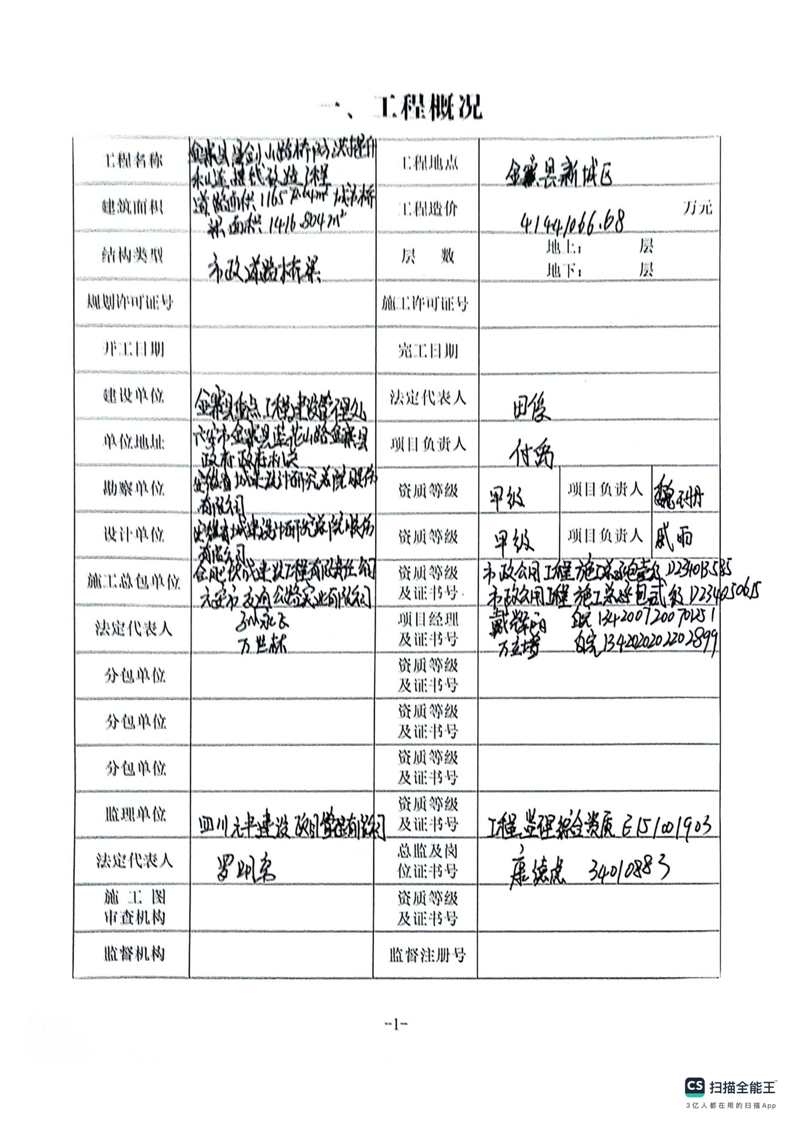 一、工程概况
工程名称 金寨县 金 山路桥 提升和 改造工程 工程地点 金寨县新城区
建筑面积 道路面积 桥梁面积1416.804m² 工程造价 41441066.68 万元
结构类型 市政道路桥梁 层 数 地上: 层
地下: 层
规划许可证号 施工许可证号
开工日期 完工日期
建设单位 金寨县重点工程建设管理处 法定代表人 田俊
单位地址 六安市金寨县莲花山路金寨县 项目负责人 付禹
政府 政府机关
勘察单位 安徽省城建设计研究总院股份 资质等级 甲级 项目负责人 魏
有限公司
设计单位 安徽省城建设计研究总院股份 资质等级 甲级 项目负责人 戚雨
有限公司
施工总包单位 合肥 建设工程有限责任公司 资质等级 市政公用工程施工总承包壹级 D234013585
六安市交通公路实业有限公司 及证书号 市政公用工程施工总承包贰级 D234250615
法定代表人 孙永飞 项目经理 戴 皖134200720070251
万世林 及证书号 万 皖1342020202202899
分包单位 资质等级
及证书号
分包单位 资质等级
及证书号
分包单位 资质等级
及证书号
监理单位 四川元丰建设项目管理有限公司 资质等级
及证书号 工程监理综合资质 E151001903
法定代表人 罗 总监及岗
位证书号 康德虎 34010883
施 工 图
审查机构 资质等级
及证书号
监督机构 监督注册号
-1-
CS 扫描全能王
3亿人都在用的扫描App